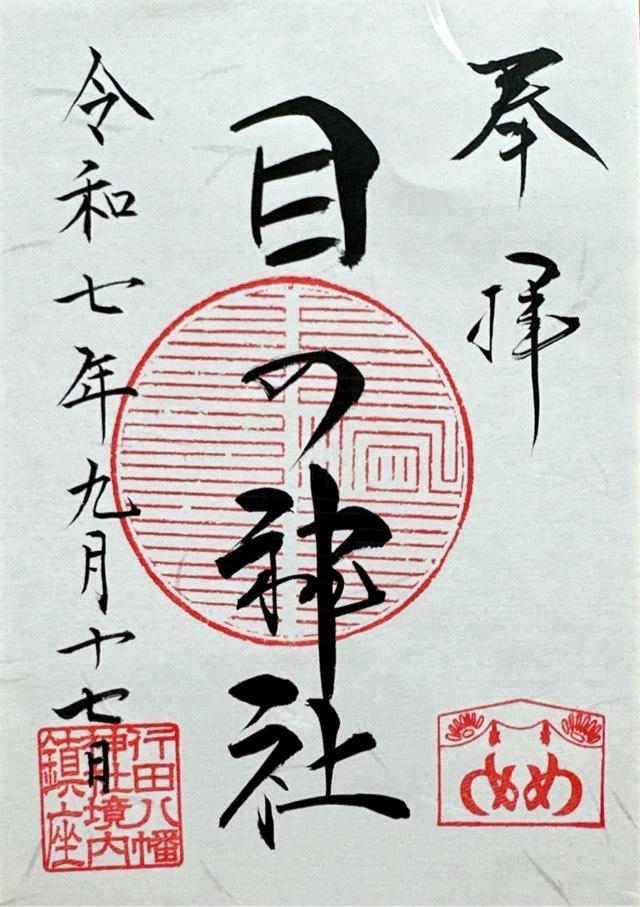 奉拝
目の神社
令和七年九月十七日
行田八幡
神社境内
鎮座
めめ